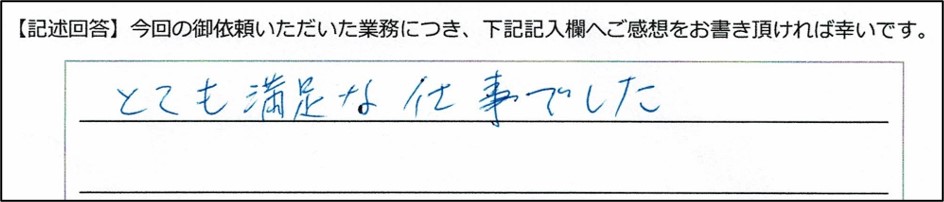 【記述回答】今回の御依頼いただいた業務につき、下記記入欄へご感想をお書き頂ければ幸いです。
とても満足な仕事でした